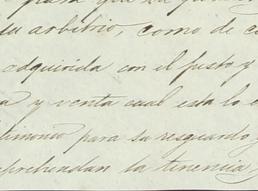 para que la
su arbitrio, como de c
adquirida con el justo y
a y venta cual esta lo
timonio para su resguardo y
prehendan la tenencia